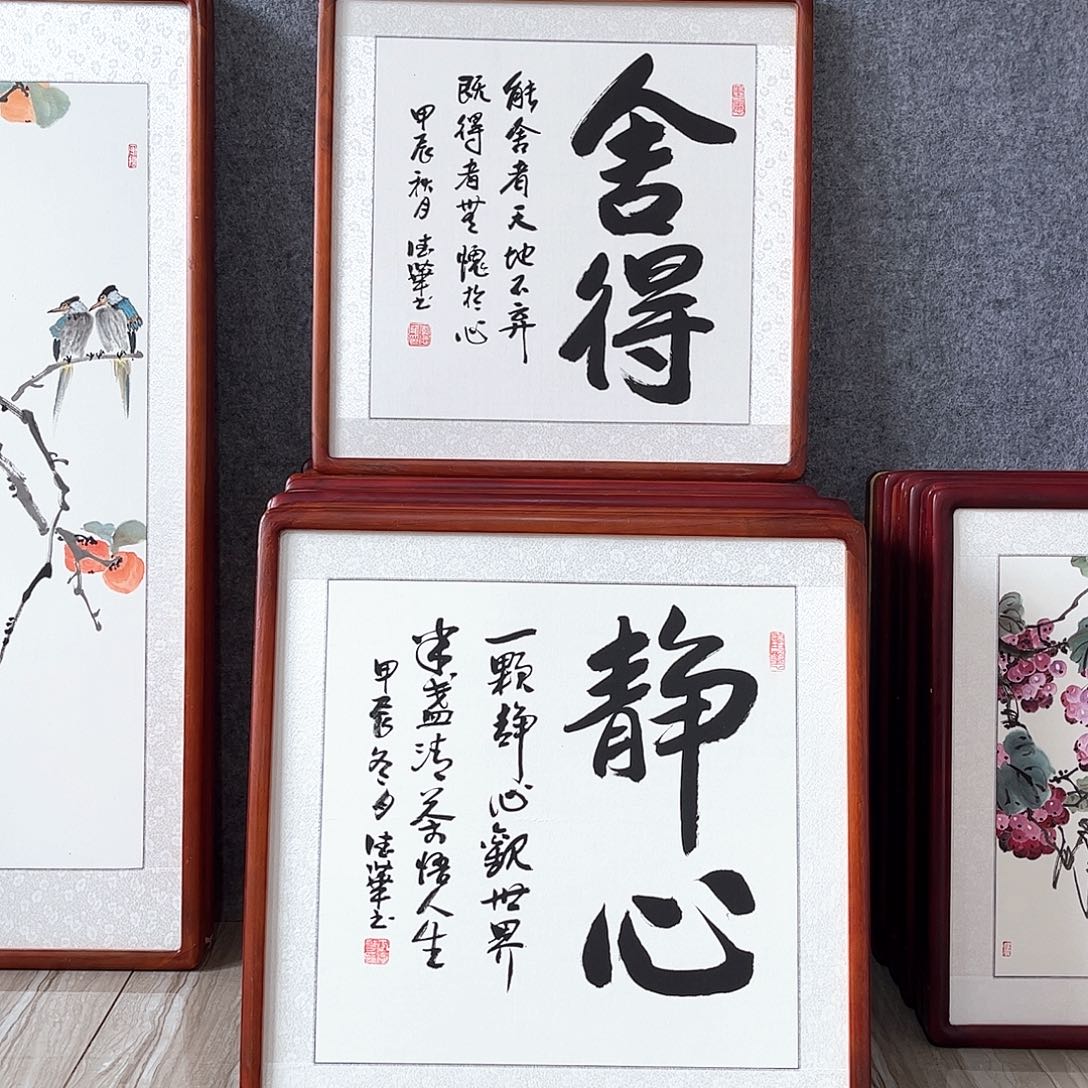 舍得
能舍者天地不弃
既得者無愧於心
甲辰秋月 德華书
静心
一颗静心觀世界
半盏清茶悟人生
甲辰冬月 德華书